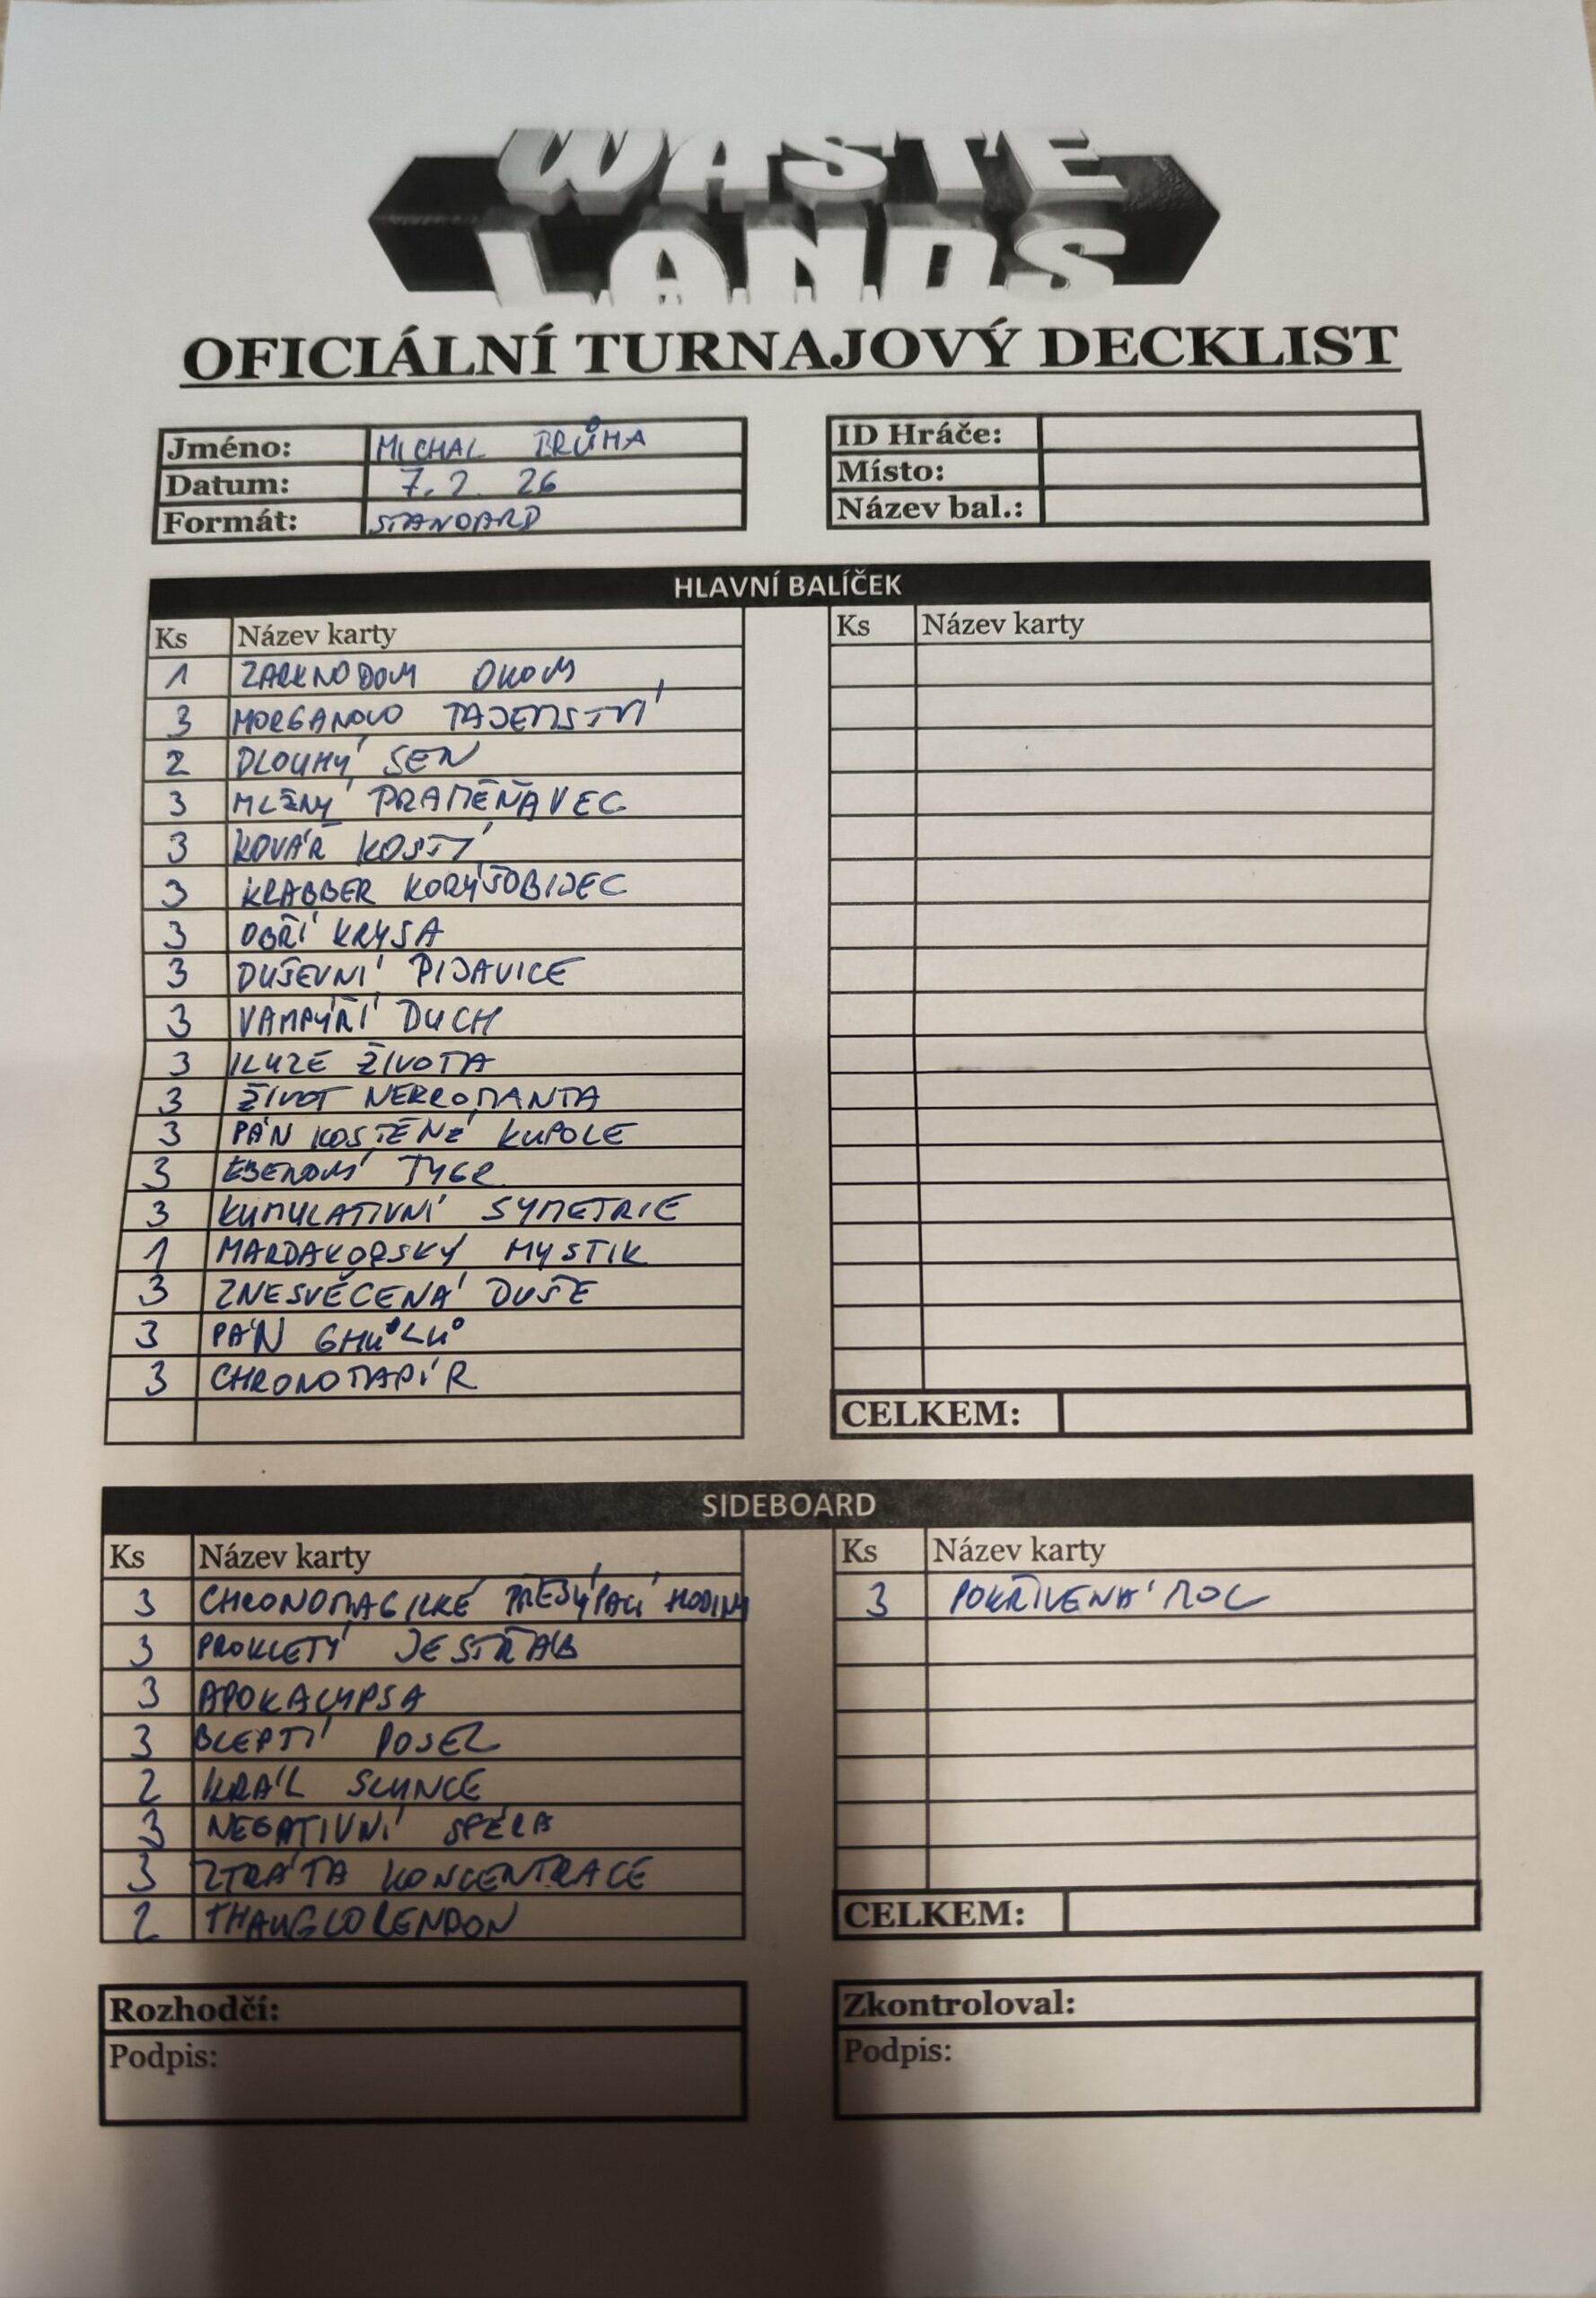 WASTE
LANDS
OFICIÁLNÍ TURNAJOVÝ DECKLIST
Jméno: MICHAL BRŮHA
Datum: 7. 2. 26
Formát: STANDARD
ID Hráče:
Místo:
Název bal.:
HLAVNÍ BALÍČEK
Ks Název karty
1 ZARKNODOM OKOM
3 MORGANOVO TAJEMSTVÍ
2 DLOUHÝ SEN
3 MLŽNÝ PRAMĚŇAVEC
3 KOVÁŘ KOSTÍ
3 KRABBER KORÝŠOBIJEC
3 OBŘÍ KRYSA
3 DUŠEVNÍ PIJAVICE
3 VAMPÝŘÍ DUCH
3 ILUZE ŽIVOTA
3 ŽIVOT NEKROMANTA
3 PÁN KOSTĚNÉ KUPOLE
3 EBENOVÝ TYGR
3 KUMULATIVNÍ SYMETRIE
1 MARDAKORSKÝ MYSTIK
3 ZNESVĚCENÁ DUŠE
3 PÁN GHŮLŮ
3 CHRONOTAPÍR
Ks Název karty
CELKEM:
SIDEBOARD
Ks Název karty
3 CHRONOMAGICKÉ PŘESÝPACÍ HODINY
3 PROKLETÝ JESTŘÁB
3 APOKALYPSA
3 BLEPTÍ POSEL
2 KRÁL SLUNCE
3 NEGATIVNÍ SFÉRA
3 ZTRÁTA KONCENTRACE
2 THAUGLORENDON
Ks Název karty
3 POKŘIVENÁ MOC
CELKEM:
Rozhodčí:
Podpis:
Zkontroloval:
Podpis: